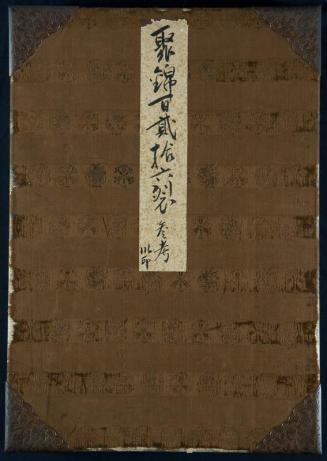 聚錦百貳拾六裂 参考